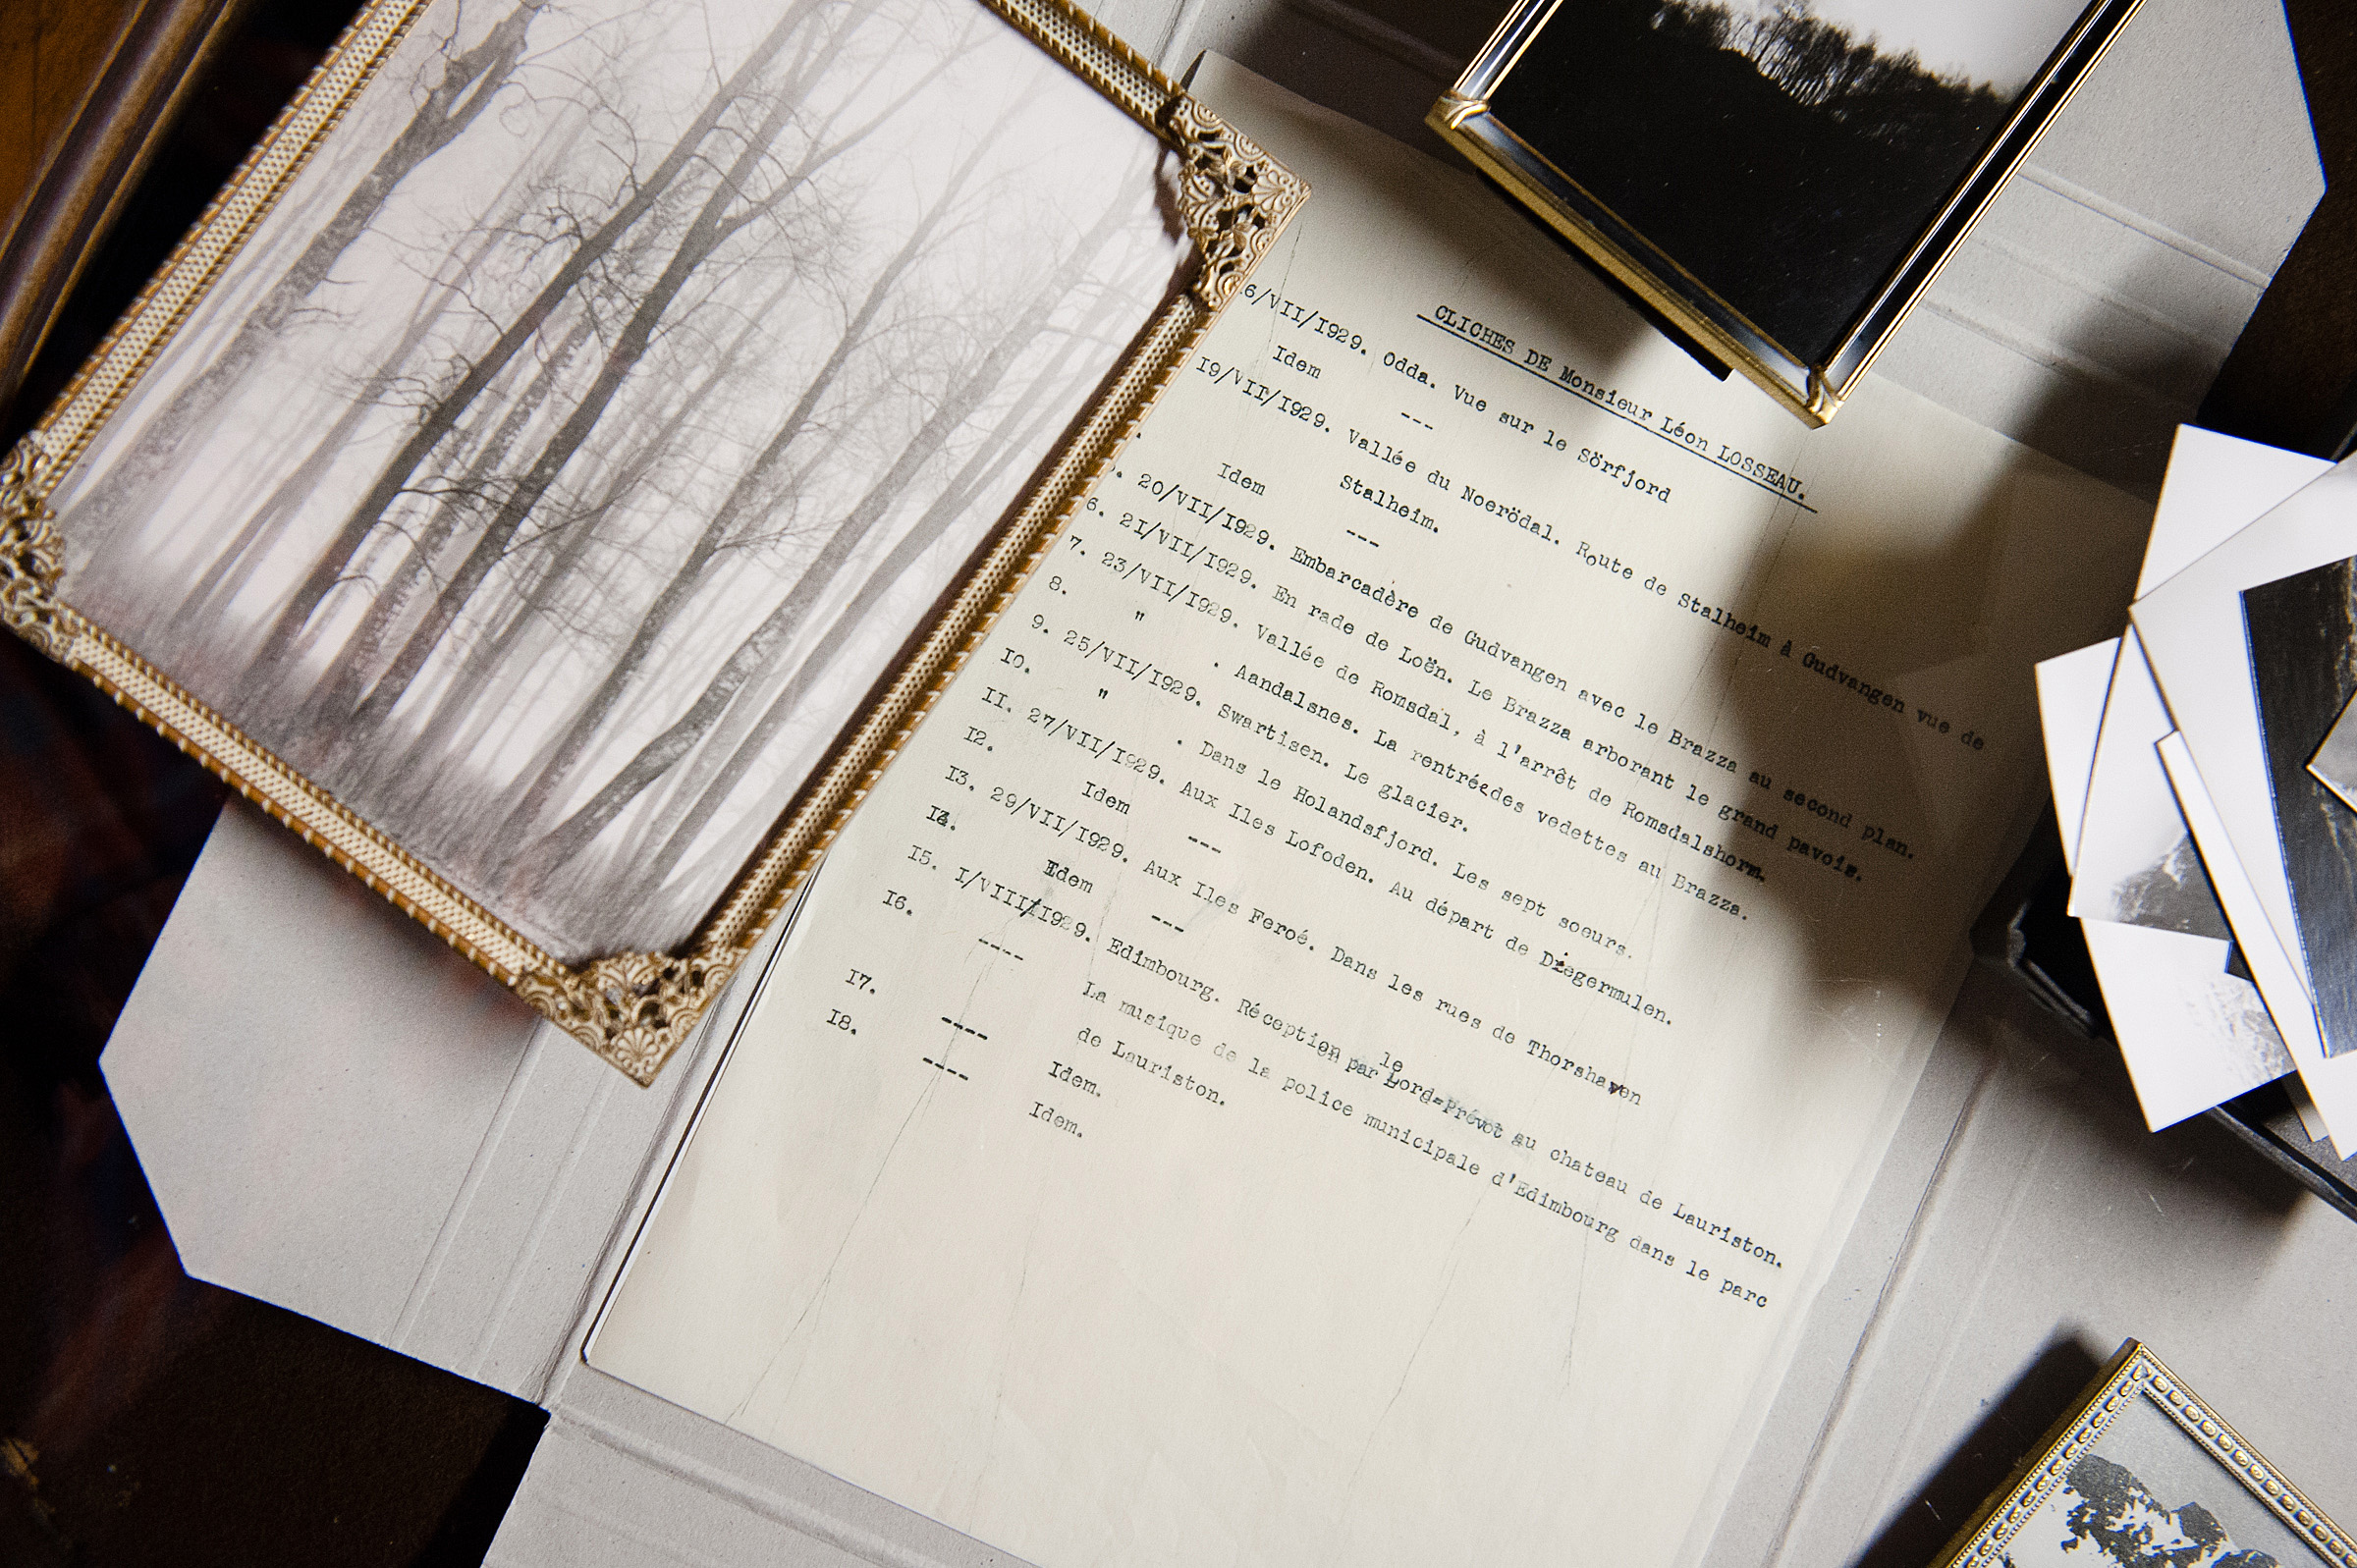 CLICHES DE Monsieur Léon LOSSEAU.
6/VII/I929. Odda. Vue sur le Sörfjord
Idem ---
I9/VII/I929. Vallée du Noerödal. Route de Stalheim à Gudvangen vue de
Stalheim.
Idem ---
20/VII/I929. Embarcadère de Gudvangen avec le Brazza au second plan.
6. 2I/VII/I929. En rade de Loën. Le Brazza arborant le grand pavois.
7. 23/VII/I929. Vallée de Romsdal, à l'arrêt de Romsdalshorm.
8. " . Aandalsnes. La rentrée des vedettes au Brazza.
9. 25/VII/I929. Swartisen. Le glacier.
I0. " . Dans le Holandsfjord. Les sept soeurs.
II. 27/VII/I929. Aux Iles Lofoden. Au départ de Diegermulen.
I2. Idem ---
I3. 29/VII/I929. Aux Iles Feroé. Dans les rues de Thorshaven
I4. Idem ---
I5. I/VIII/I929. Edimbourg. Réception par le Lord-Prévot au chateau de Lauriston.
I6. ---- La musique de la police municipale d'Edimbourg dans le parc
de Lauriston.
I7. ---- Idem.
I8. ---- Idem.